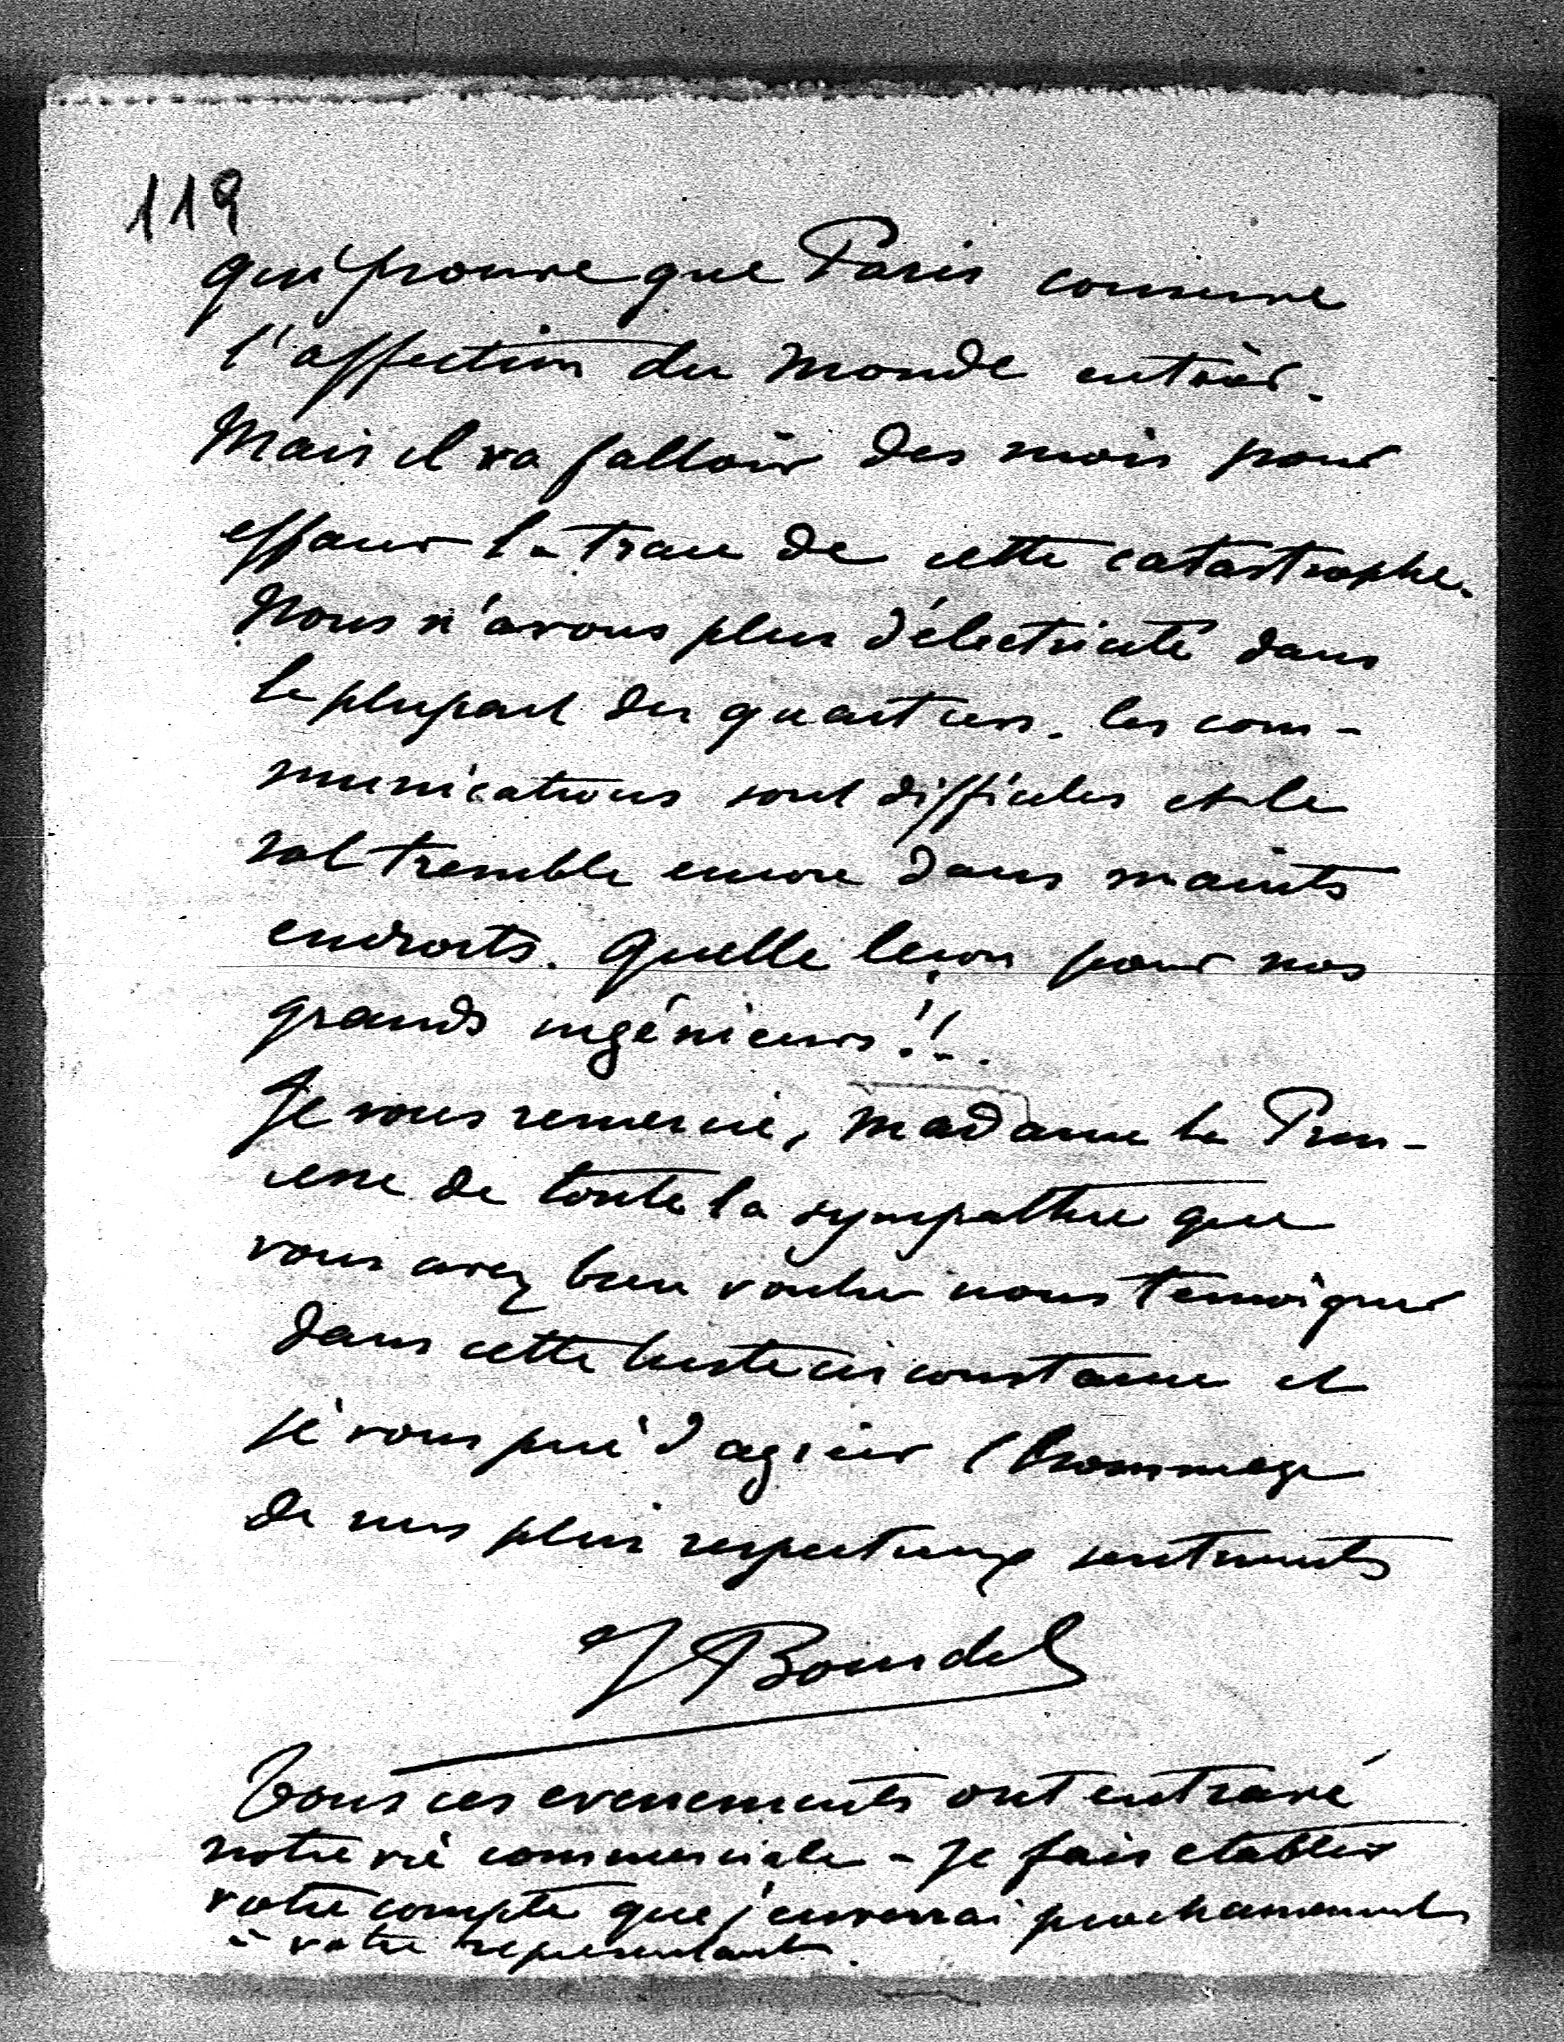 119
qui prouve que Paris conserve
l'affection du monde entier.
Mais il va falloir des mois pour
effacer la trace de cette catastrophe.
Nous n'avons plus d'électricité dans
la plupart des quartiers. les com-
munications sont difficiles et le
sol tremble encore dans maints
endroits. Quelle leçon pour nos
grands ingénieurs !!.
Je vous remercie, Madame la Prin-
cesse de toute la sympathie que
vous avez bien voulu nous temoigner
dans cette triste circonstance et
je vous prie d'agréer l'hommage
de nos plus respectueux sentiments
J Bourdel
Tous ces evenements ont entravé
notre vie commerciale - Je fais etablir
votre compte que j'enverrai prochainement
à votre representant.